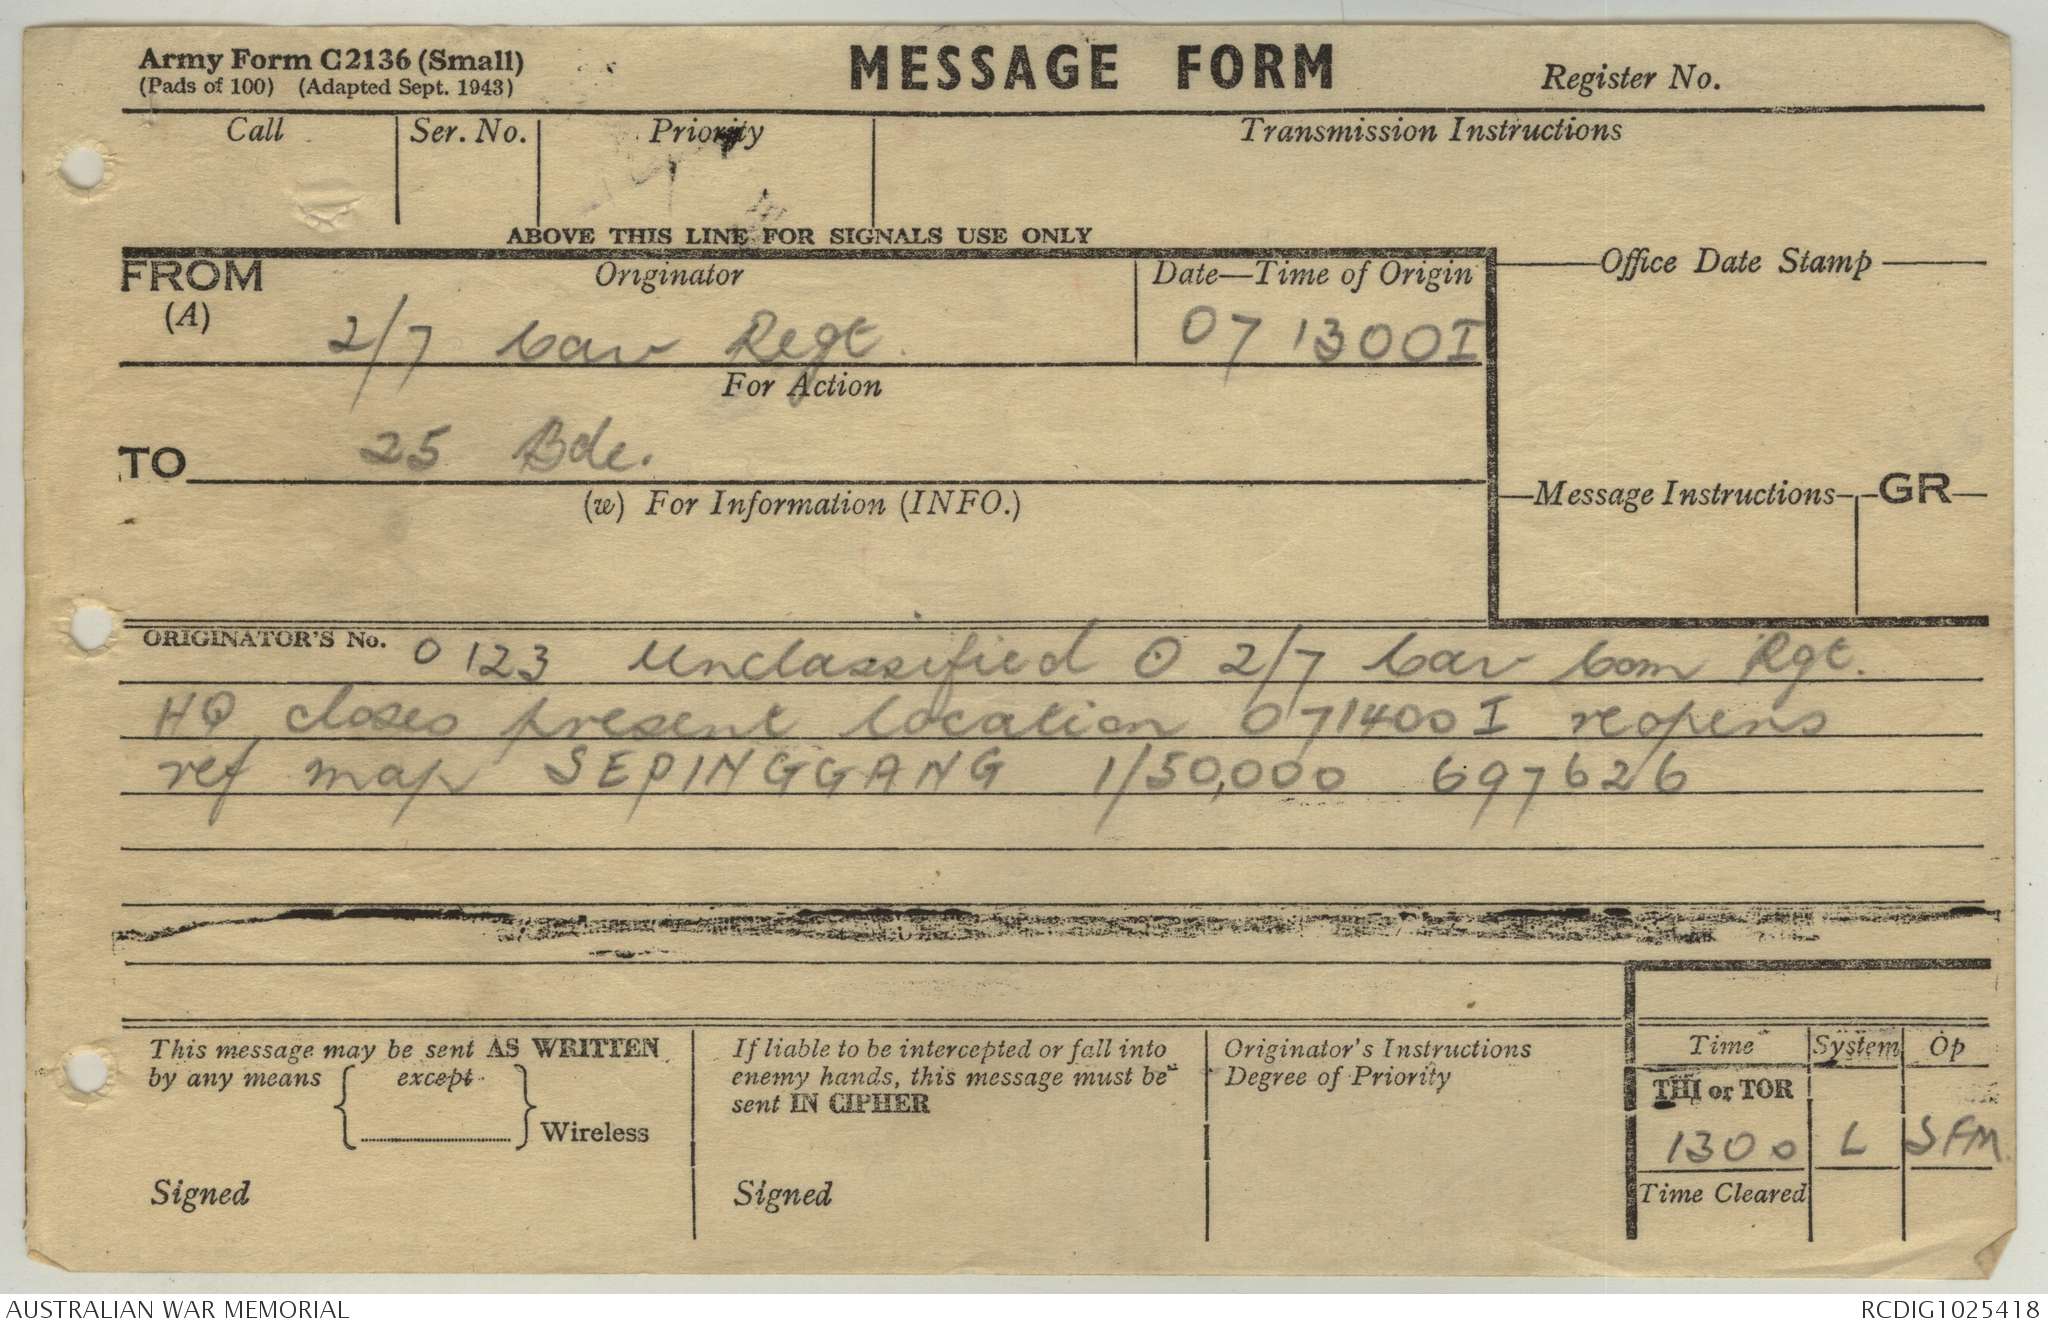 Army Form C2136 (Small)
(Pads of 100) (Adapted Sept. 1943)
MESSAGE FORM
Register No.
Call
Ser. No.
Priority
Transmission Instructions
ABOVE THIS LINE FOR SIGNALS USE ONLY
FROM
(A)
Originator
2/7 Cav Regt.
Date—Time of Origin
07 1300I
Office Date Stamp
For Action
TO
25 Bde.
(w) For Information (INFO.)
Message Instructions
GR
ORIGINATOR'S No. 0123 Unclassified O 2/7 Cav Com Rgt.
HQ closes present location 071400I reopens
ref map SEPINGGANG 1/50,000 697626
This message may be sent AS WRITTEN
by any means except
Wireless
Signed
If liable to be intercepted or fall into
enemy hands, this message must be
sent IN CIPHER
Signed
Originator's Instructions
Degree of Priority
Time System Op
THI or TOR
1300 L SFM.
Time Cleared
AUSTRALIAN WAR MEMORIAL
RCDIG1025418